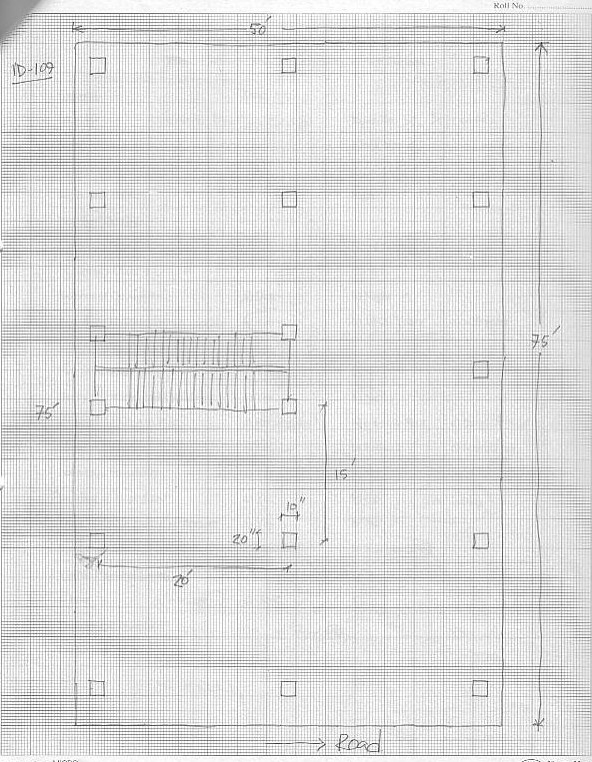 Roll No.
50'
ID-109
75'
75'
15'
10"
20"
20'
Road